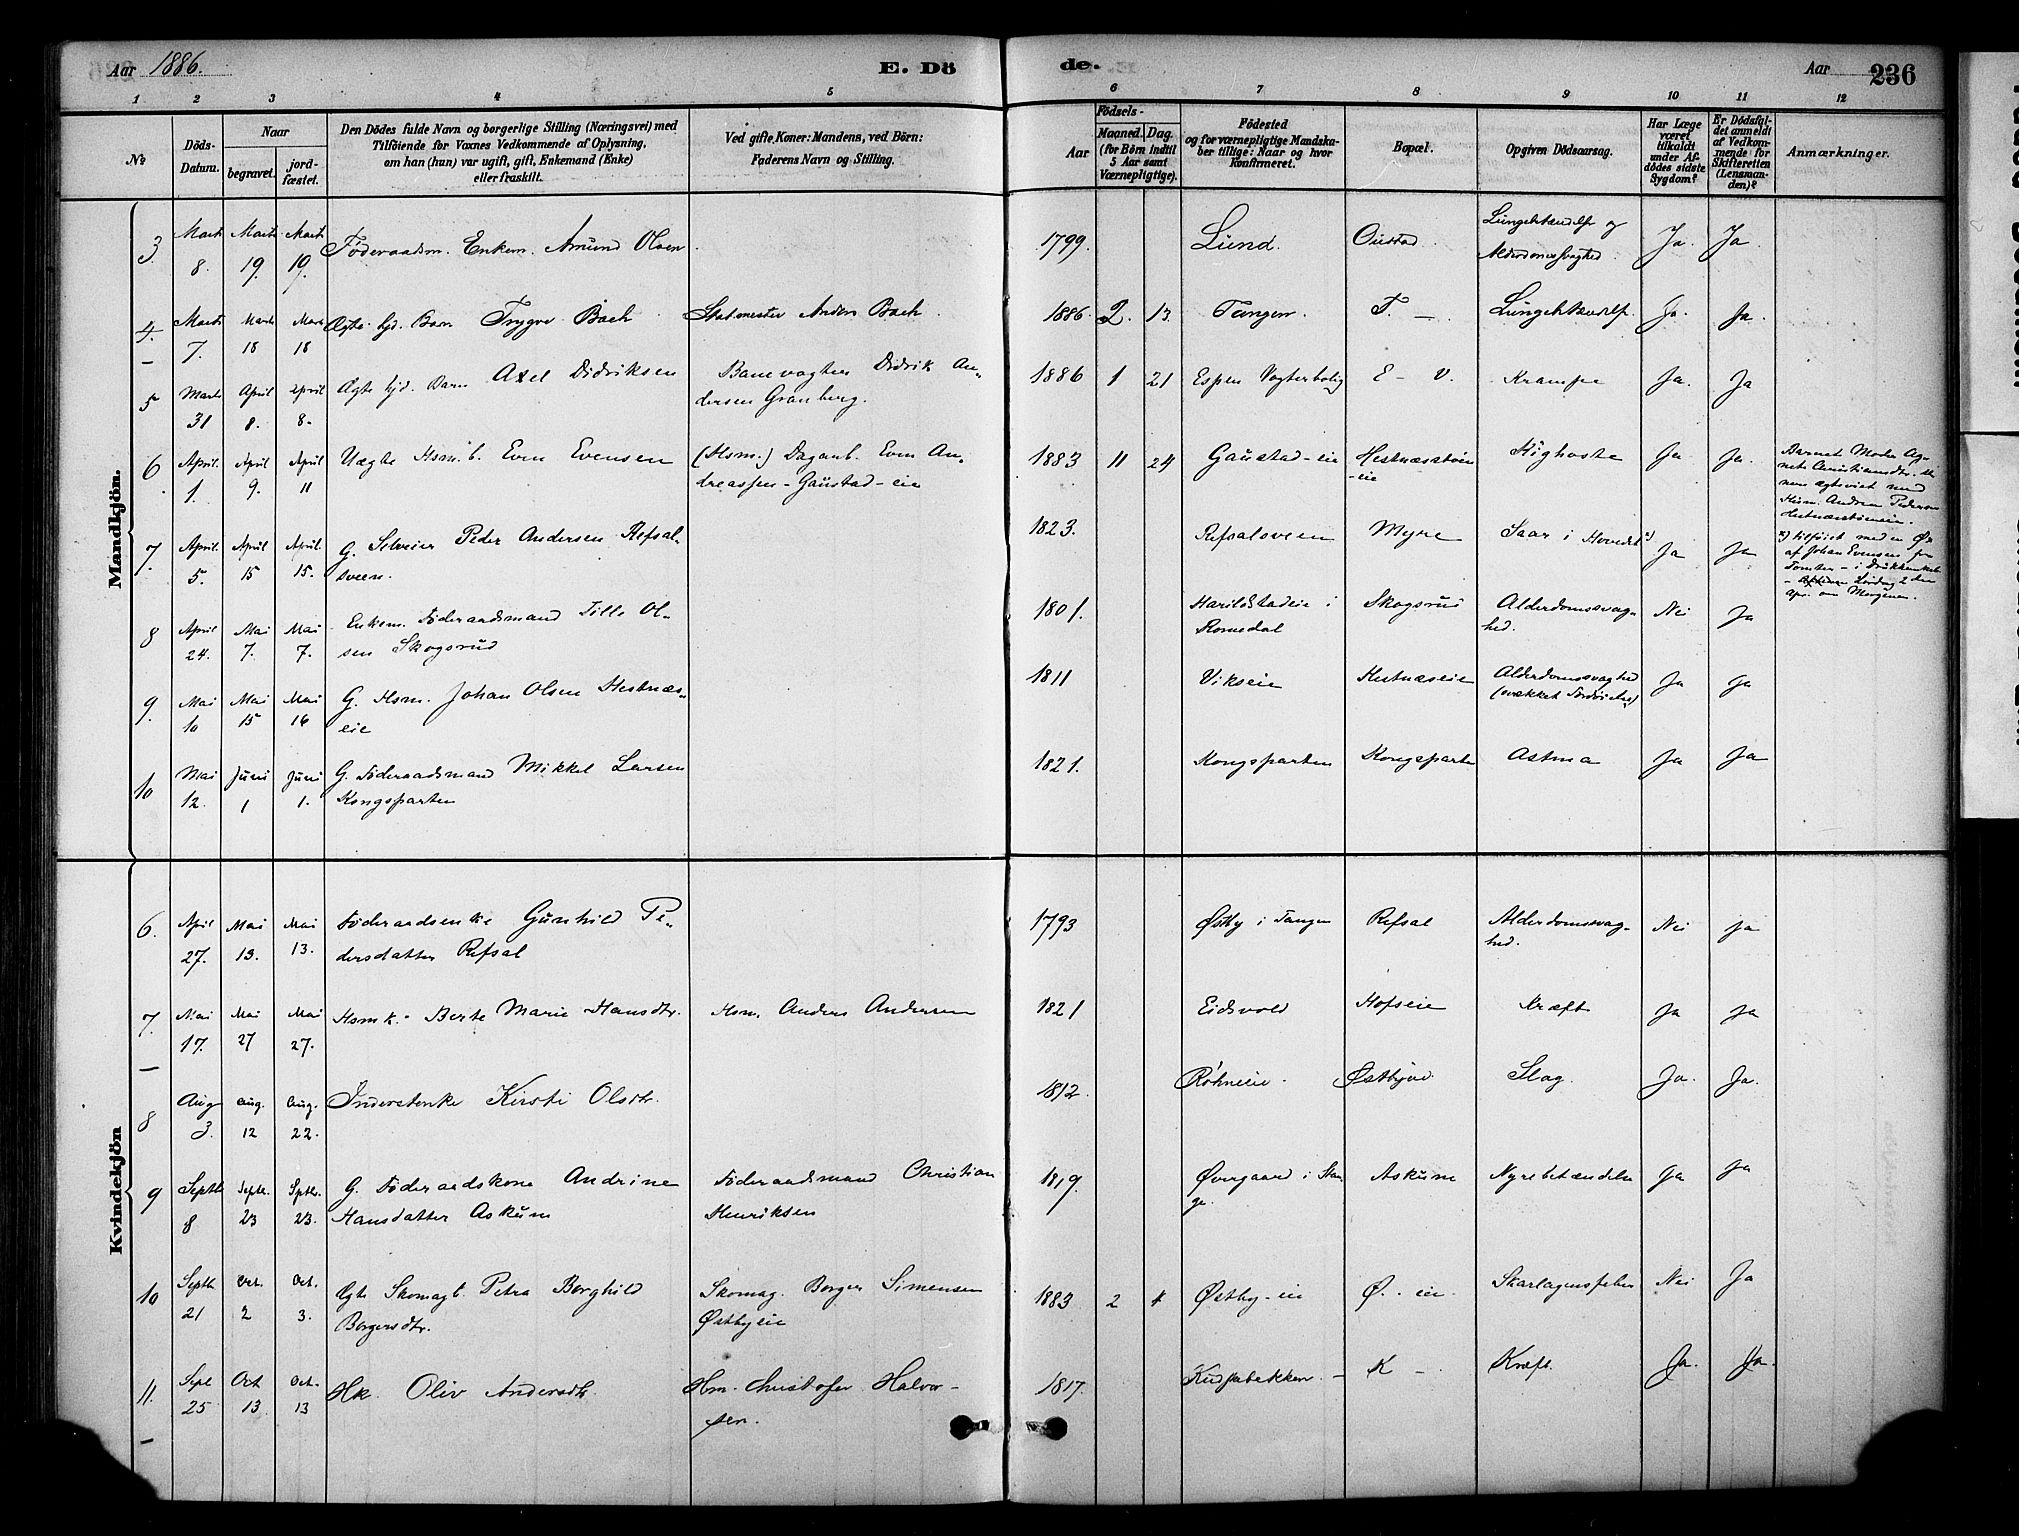 Aar 1886.
E. Döde.
Aar 236
1 2 3 4 5 6 7 8 9 10 11 12
No
Döds-Datum.
Naar
begravet.
jordfæstet.
Den Dödes fulde Navn og borgerlige Stilling (Næringsvei) med
Tilföiende for Voxnes Vedkommende af Oplysning,
om han (hun) var ugift, gift, Enkemand (Enke)
eller fraskilt.
Ved gifte Koner: Mandens, ved Börn:
Faderens Navn og Stilling.
Födsels-
Aar
Maaned. Dag.
(for Börn indtil
5 Aar samt
Værnepligtige).
Födested
og for værnepligtige Mandska-
ber tillige: Naar og hvor
Konfirmeret.
Bopæl.
Opgiven Dödsaarsag.
Har Læge
været
tilkaldt
under Af-
dödes sidste
Sygdom?
Er Dödsfal-
det anmeldt
af Vedkom-
mende for
Skifteretten
(Lensman-
den)?
Anmærkninger.
Mandkjön.
3. Marts 8. Marts 19. Marts 19. Föderaadsm. Enkem. Amund Olsen 1799. Lund. Lungebetændelse og Alderdomssvaghed. Ja. Ja.
4. Marts 7. Marts 18 Marts 18 Ægte hjd. Barn Trygve Bach Anders Bach. 1886. 2. 13. Tangen. T. — Lungebetændelse. Ja. Ja.
5 Marts 31 April 8. April 8. Ægte hjd. Barn Axel Didriksen Banevogter Didrik An-
dersen Granberg. 1886 1 21 Espen Vogterbolig E - V. Krampe Ja. Ja
6 April 1. April 9. April 11 Uægte Hsm. b. Even Evensen (Hsm.) Dagarb. Even An-
dreassen - Gaustad-eie 1883 11 24 Gaustad-eie Hestnæsstøen
-eie Kighoste Ja Ja. Barnet Moder Ag-
net Christiansdtr. er
nu ægteviet med
Husm. Andreas Pedersen
Hestnæsstøeneie.
7. April 5. April 15 April 15. G. Selveier Peder Andersen Refsal-
sveen. 1823. Refsalsveen Myre Saar i Hovedet x) Ja Ja x) tilføiet med en Øx
af Johan Evensen fra
Tomter - i Drukkenskab
- Lørdag 2den
apr. om Morgenen.
8 April 24. Mai 7. Mai 7. Enkem. Föderaadsmand Tille Ol-
sen Skogsrud 1801. Harildstadeie i
Romedal Skogsrud Alderdomssvag-
hed. Nei Ja
9. Mai 10 Mai 15 Mai 16 G. Hsm. Johan Olsen Hestnæs-
eie 1811 Vikseie Hestnæseie Alderdomssvaghed Ja Ja
10 Mai 12. Juni 1 Juni 1. G. Föderaadsmand Mikkel Larsen
Kongsparten 1821. Kongsparten Kongsparten Astma Ja Ja
Kvindekjön
6. April 27. Mai 13. Mai 13. Föderaadsenke Gunhild Pe-
dersdatter Refsal 1793 Østby i Tangen Refsal Alderdomssvag-
hed. Nei Ja
7. Mai 17. Mai 27 Mai 27. Hsmk. Berte Marie Hansdtr. Hsm. Anders Andersen 1821 Eidsvold Hofseie Kræft Ja Ja
8 Aug 3. Aug. 12 Aug. 22. Inderstenke Kirsti Olsdtr. 1812. Røhneie. Østbyeie Slag. Ja. Ja.
9 Septb 8 Septb. 23 Septbr. 23. G. Föderaadskone Andrine
Hansdatter Askum Föderaadsmand Christian
Henriksen 1819. Øvergaard i Stan-
ge. Askum Nyrebetændelse Ja Ja
10 Septb 21 Oct. 2 Oct. 3. Ægte Skomagb. Petra Borghild
Borgersdtr. Skomag. Borger Simensen
Østbyeie 1883 2 4 Østby-eie Ø.-eie. Skarlagensfeber Nei Ja
11. Sept 25 Oct 13 Oct. 13 Hk. Oliv Andersdtr. Hm. Christofer Halvor-
sen. 1817. K — Kræft. Ja. Ja.